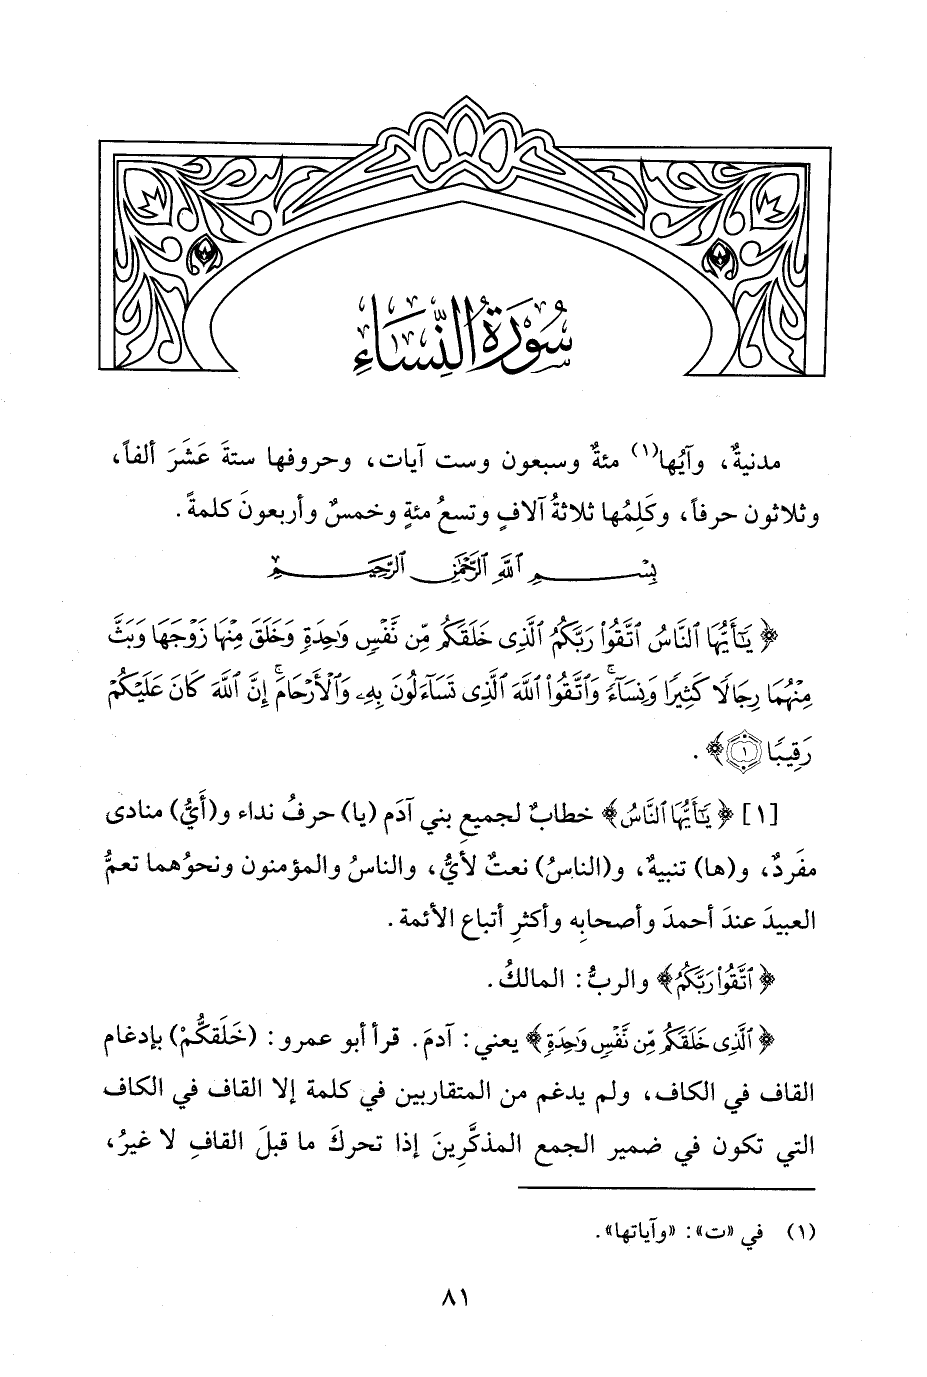 سُورَةُ النِّسَاءِ
مدنيةٌ، وآيُها(١) مئةٌ وسبعون وست آيات، وحروفها ستةَ عَشَرَ ألفاً،
وثلاثون حرفاً، وكَلِمُها ثلاثةُ آلافٍ وتسعُ مئةٍ وخمسٌ وأربعونَ كلمةً.
بِسْمِ ٱللَّهِ ٱلرَّحْمَٰنِ ٱلرَّحِيمِ
﴿ يَٰٓأَيُّهَا ٱلنَّاسُ ٱتَّقُوا۟ رَبَّكُمُ ٱلَّذِى خَلَقَكُم مِّن نَّفْسٍ وَٰحِدَةٍ وَخَلَقَ مِنْهَا زَوْجَهَا وَبَثَّ
مِنْهُمَا رِجَالًا كَثِيرًا وَنِسَآءً ۚ وَٱتَّقُوا۟ ٱللَّهَ ٱلَّذِى تَسَآءَلُونَ بِهِۦ وَٱلْأَرْحَامَ ۚ إِنَّ ٱللَّهَ كَانَ عَلَيْكُمْ
رَقِيبًا ١ ﴾.
[١] ﴿ يَٰٓأَيُّهَا ٱلنَّاسُ ﴾ خطابٌ لجميعِ بني آدَم (يا) حرفُ نداء و(أَيُّ) منادى
مفَردٌ، و(ها) تنبيهٌ، و(الناسُ) نعتٌ لأيُّ، والناسُ والمؤمنون ونحوُهما تعمُّ
العبيدَ عندَ أحمدَ وأصحابِه وأكثرِ أتباع الأئمة.
﴿ ٱتَّقُوا۟ رَبَّكُمُ ﴾ والربُّ: المالكُ.
﴿ ٱلَّذِى خَلَقَكُم مِّن نَّفْسٍ وَٰحِدَةٍ ﴾ يعني: آدمَ. قرأ أبو عمرو: (خَلَقكُّمْ) بإدغام
القاف في الكاف، ولم يدغم من المتقاربين في كلمة إلا القاف في الكاف
التي تكون في ضمير الجمع المذكَّرِينَ إذا تحركَ ما قبلَ القافِ لا غيرُ،
(١) في «ت»: «وآياتها».
٨١